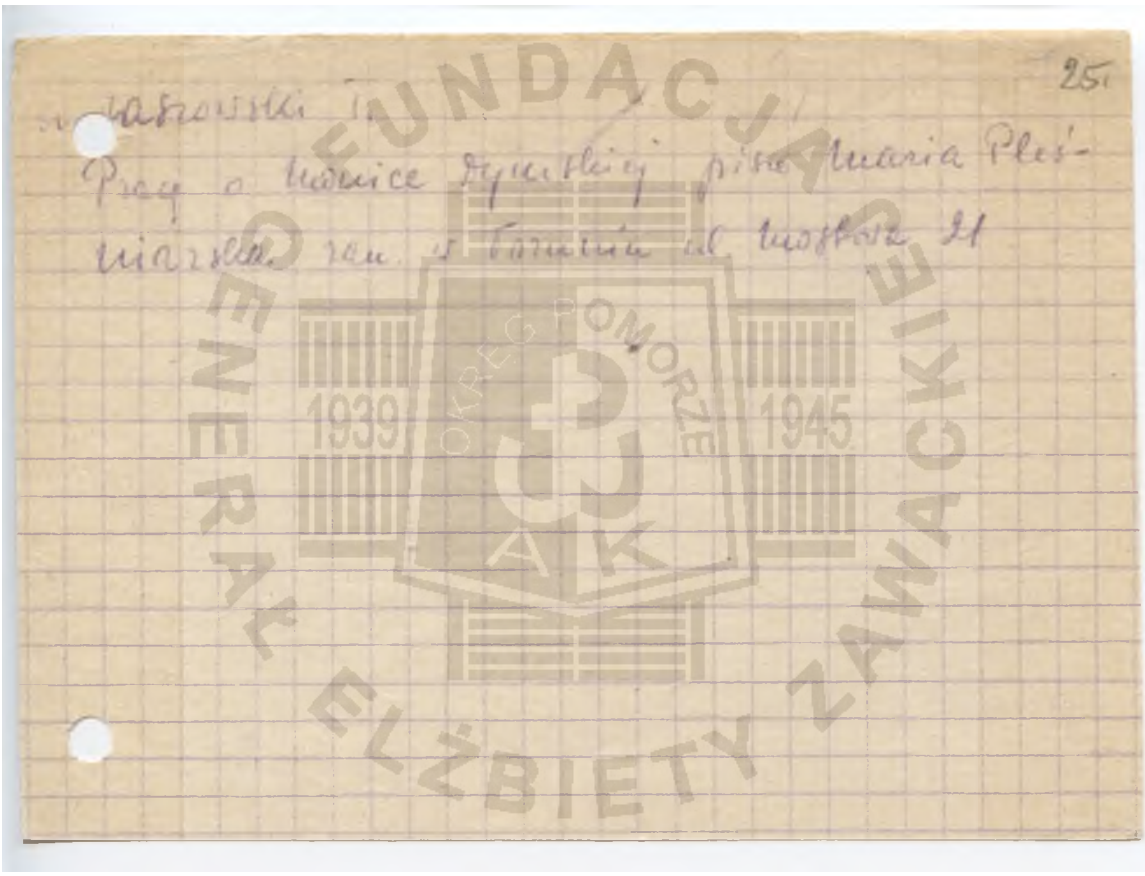 25.
Jaszowski T.
Pracę o Monice Dymskiej pisze Maria Pleś-
niarska zam. w Toruniu ul Mostowa 21
FUNDACJA
GENERAŁ ELŻBIETY ZAWACKIEJ
OKRĘG POMORZE
1939
1945
AK